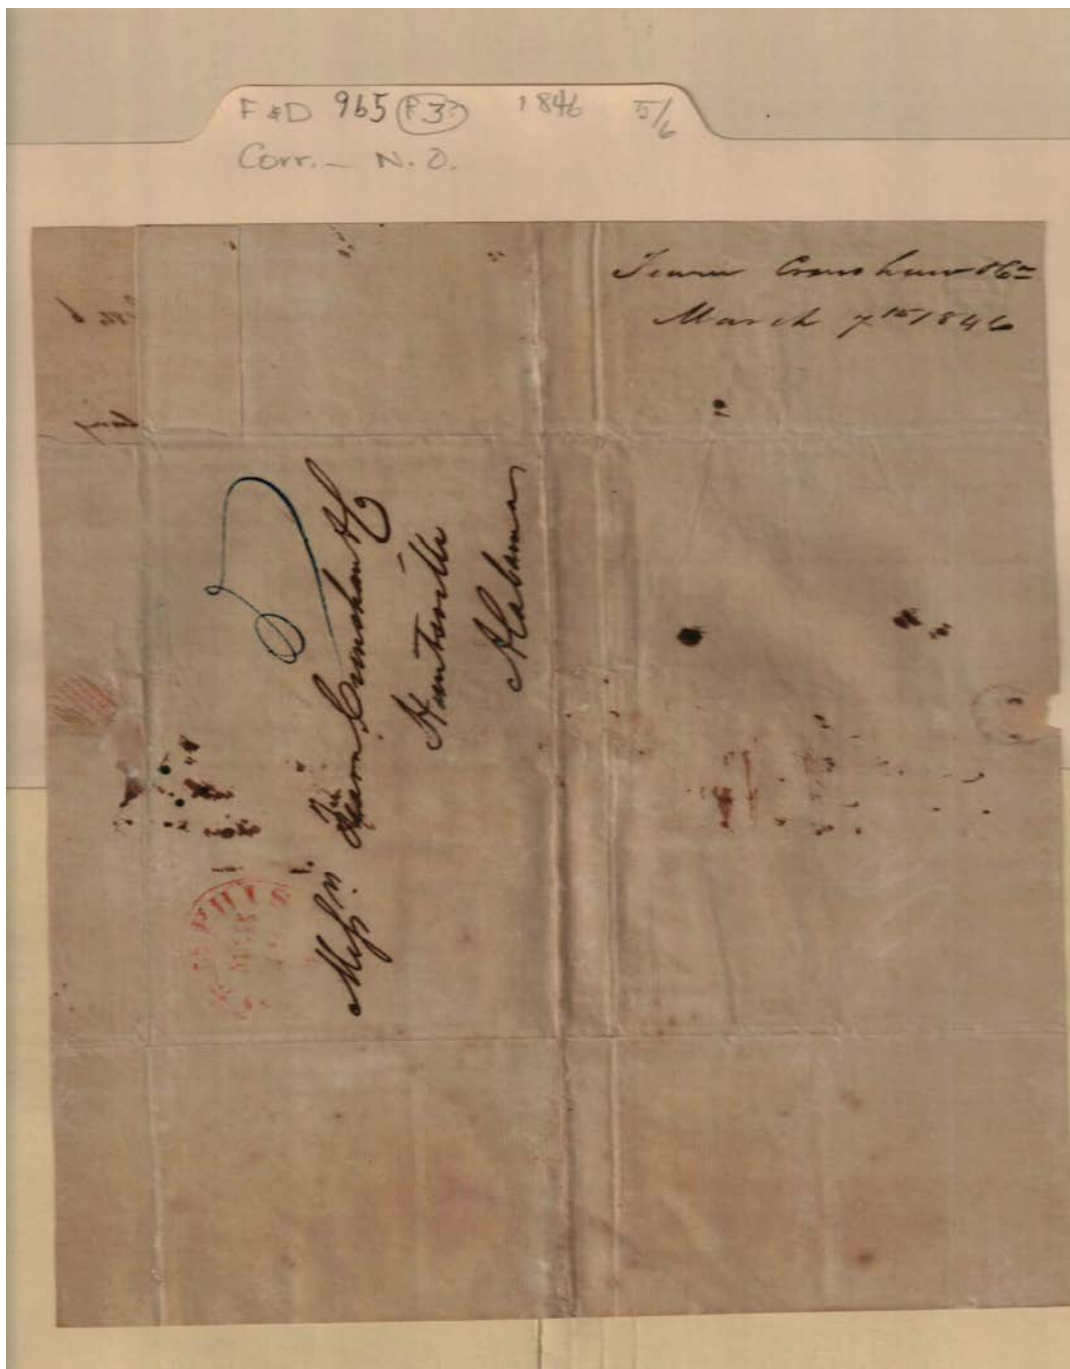 F&D 965 F3? 1846 5/6
Corr. — N.O.
Fearn Crenshaw & Co
March 7th 1846
Messrs. Fearn Crenshaw & Co
Huntsville
Alabama